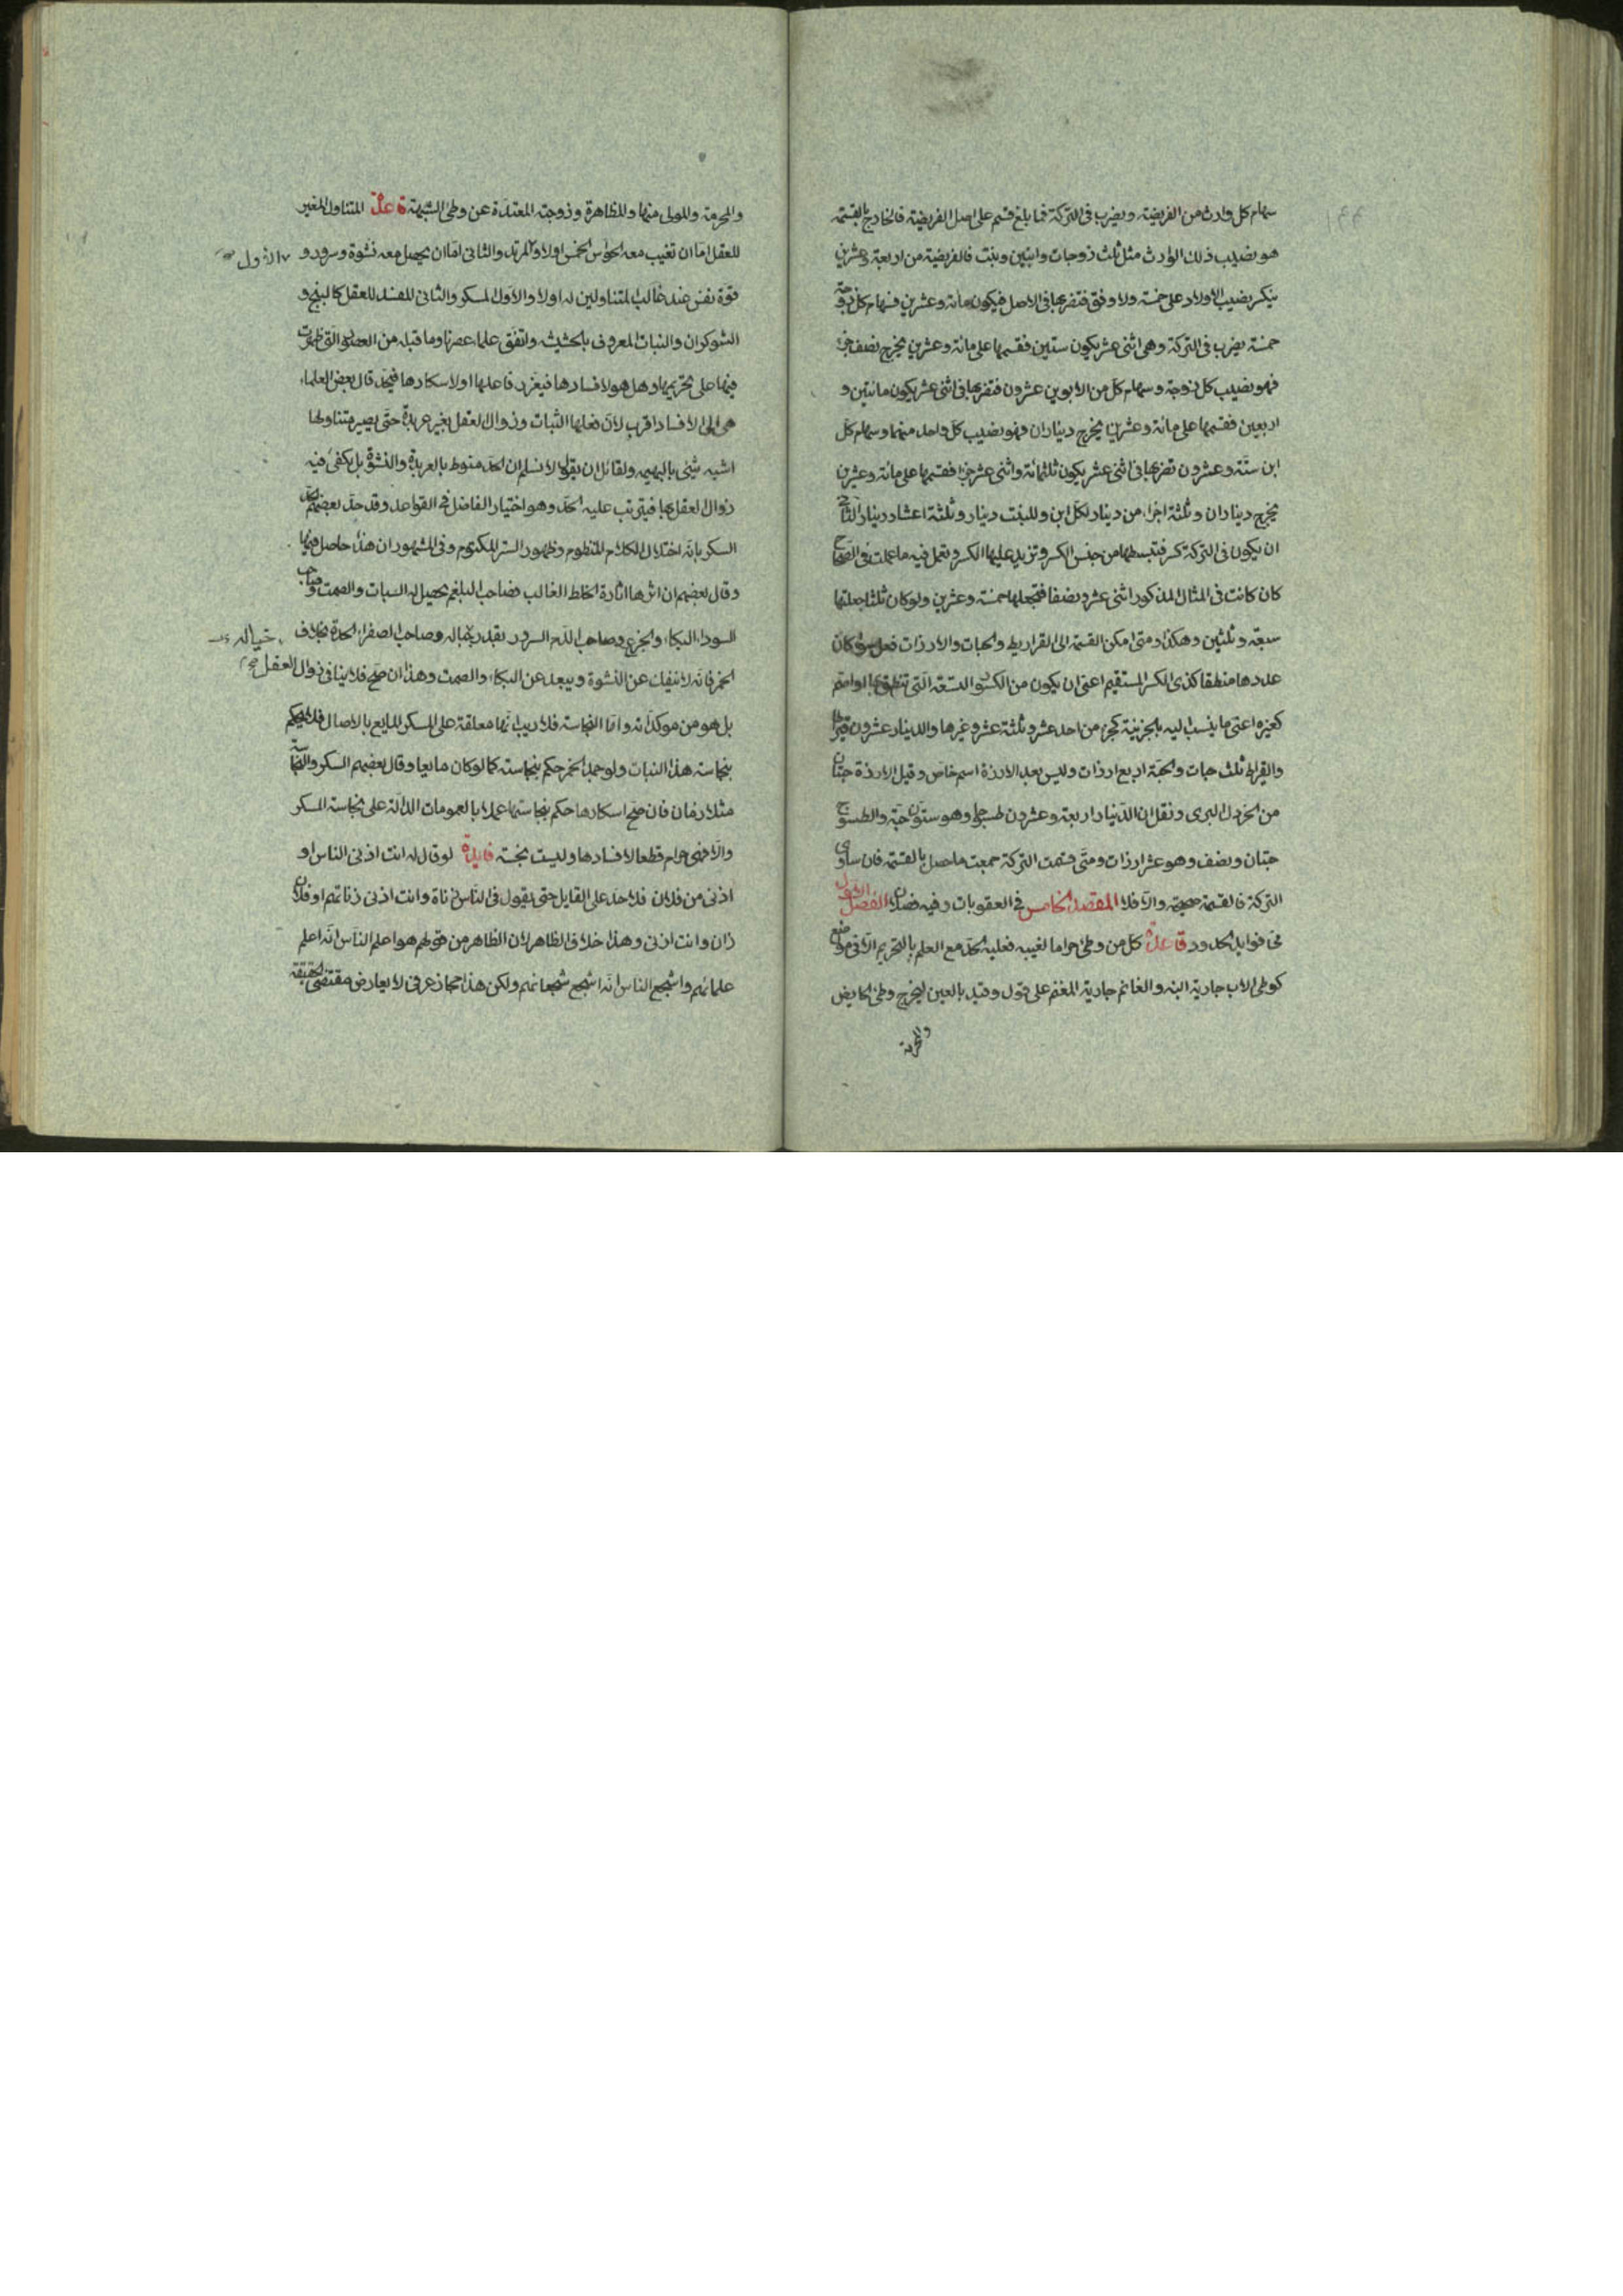 سهام كل وارث من الفريضة ويضرب فى التركة فما بلغ قسم على اصل الفريضة فالخارج بالقسمة
هو نصيب ذلك الوارث مثل ثلث زوجات وابنين وبنت فالفريضة من اربعة وعشرين
ينكسر نصيب الاولاد على خمسة ولا وفق فتضربها فى الاصل فيكون مائة وعشرين فسهام كل زوجة
خمسة يضرب فى التركة وهى اثنى عشر يكون ستين فقسمها على مائة وعشرين يخرج نصف جزء
فهو نصيب كل زوجة وسهام كل من الابوين عشرون فتضربها فى اثنى عشر يكون مائتين و
اربعين فقسمها على مائة وعشرين يخرج ديناران فهو نصيب كل واحد منهما وسهام كل
ابن ستة وعشرون تضربها فى اثنى عشر يكون ثلثمائة واثنى عشر جزءا فقسمها على مائة وعشرين
يخرج ديناران وثلثة اجزاء من دينار لكل ابن وللبنت دينار وثلثة اعشار دينار الثانى
ان يكون فى التركة كسر فتبسطها من جنس الكسر وتزيد عليها الكسر وتعمل فيه ما عملت فى الصحاح
كان كانت فى المثال المذكور اثنى عشر ونصفا فتجعلها خمسة وعشرين ولو كان ثلثا جعلتها
سبعة وثلثين وهكذا ومتى امكن القسمة الى القراريط والحبات والارزات فعل سواء كان
عددها منطقا كذى الكسر المستقيم اعنى ان يكون من الكسور التسعة التى تنطق بها او اصم
كغيره اعنى ما ينسب اليه بالجزئية كجزء من احد عشر وثلثة عشر وغيرها والدينار عشرون قيراطا
والقيراط ثلث حبات والحبة اربع ارزات وليس بعد الارزة اسم خاص وقيل الارزة حبتان
من الخردل البرى ونقل ان الدينار اربعة وعشرون طسوجا وهو ستون حبة والطسوج
حبتان ونصف وهو عشر ارزات ومتى قسمت التركة جمعت ما حصل بالقسمة فان ساوى
التركة فالقسمة صحيحة والا فلا المقصد الخامس فى العقوبات وفيه فصلان الفصل الاول
فى فوايد الحدود قاعدة كل من وطئ حراما لغيبه فعليه الحد مع العلم بالتحريم الا فى مواضع
كوطى الاب جارية ابنه والغانم جارية المغنم على قول وقيد بالعين ليخرج وطئ الحايض
والمحرمة
والمحرمة والمولى منها والمظاهرة وزوجته المعتدة عن وطئ الشبهة قاعدة المتناول المغير
للعقل اما ان تغيب معه الحواس الخمس اولا والمرقد والثانى اما ان يحصل معه نشوة وسرور و
الاول صح
قوة نفس عند غالب المتناولين له اولا والاول المسكر والثانى المفسد للعقل كالبنج و
الشوكران والنبات المعروف بالحشيشة واتفق علماء عصرنا وما قبله من العصور التى ظهرت
فيها على تحريمها وهل هو لافسادها فيعزر فاعلها او لاسكارها فيحد قال بعض العلماء
هى الى الافساد اقرب لان فعلها الثبات وزوال العقل بغير عربدة حتى يصير متناولها
اشبه شئ بالبهيمة ولقائل ان يقول لا نسلم ان الحد منوط بالعربدة والنشوة بل يكفى فيه
زوال العقل بها فيترتب عليه الحد وهو اختيار الفاضل فى القواعد وقد حد بعضهم حد
السكر بانه اختلال الكلام المنظوم وظهور السر المكتوم وفى المشهور ان هذا حاصل فيها
وقال بعضهم ان اثرها اثارة الخلط الغالب فصاحب البلغم يحصل له السبات والصمت وصاحب
السوداء البكاء والجزع وصاحب الدم السرور بقدر وصاحب الصفراء الحدة بخلاف
خياله
الخمر فانه لا ينفك عن النشوة ويبعد عن البكاء والصمت وهذا ان صح فلا ينافى زوال العقل صح
بل هو من موكداته واما النجاسة فلا ريب انها معلقة على المسكر المايع بالاصالة فلا يحكم
بنجاسة هذا النبات ولو جمد الخمر حكم بنجاسته كما لو كان مايعا وقال بعضهم السكر والنجاسة
متلازمان فان صح اسكارها حكم بنجاستها عملا بالعمومات الدالة على نجاسة المسكر
والا فهى حرام قطعا لافسادها وليست نجسة فايدة لو قال له انت ازنى الناس او
ازنى من فلان فلا حد على القايل حتى يقول فى الناس زناة وانت ازنى زناتهم او فلان
زان وانت ازنى وهذا خلاف الظاهر لان الظاهر من قولهم هو اعلم الناس انه اعلم
علمائهم واشجع الناس انه اشجع شجعانهم ولكن هذا مجاز عرفى لا يعارض مقتضى الحقيقة